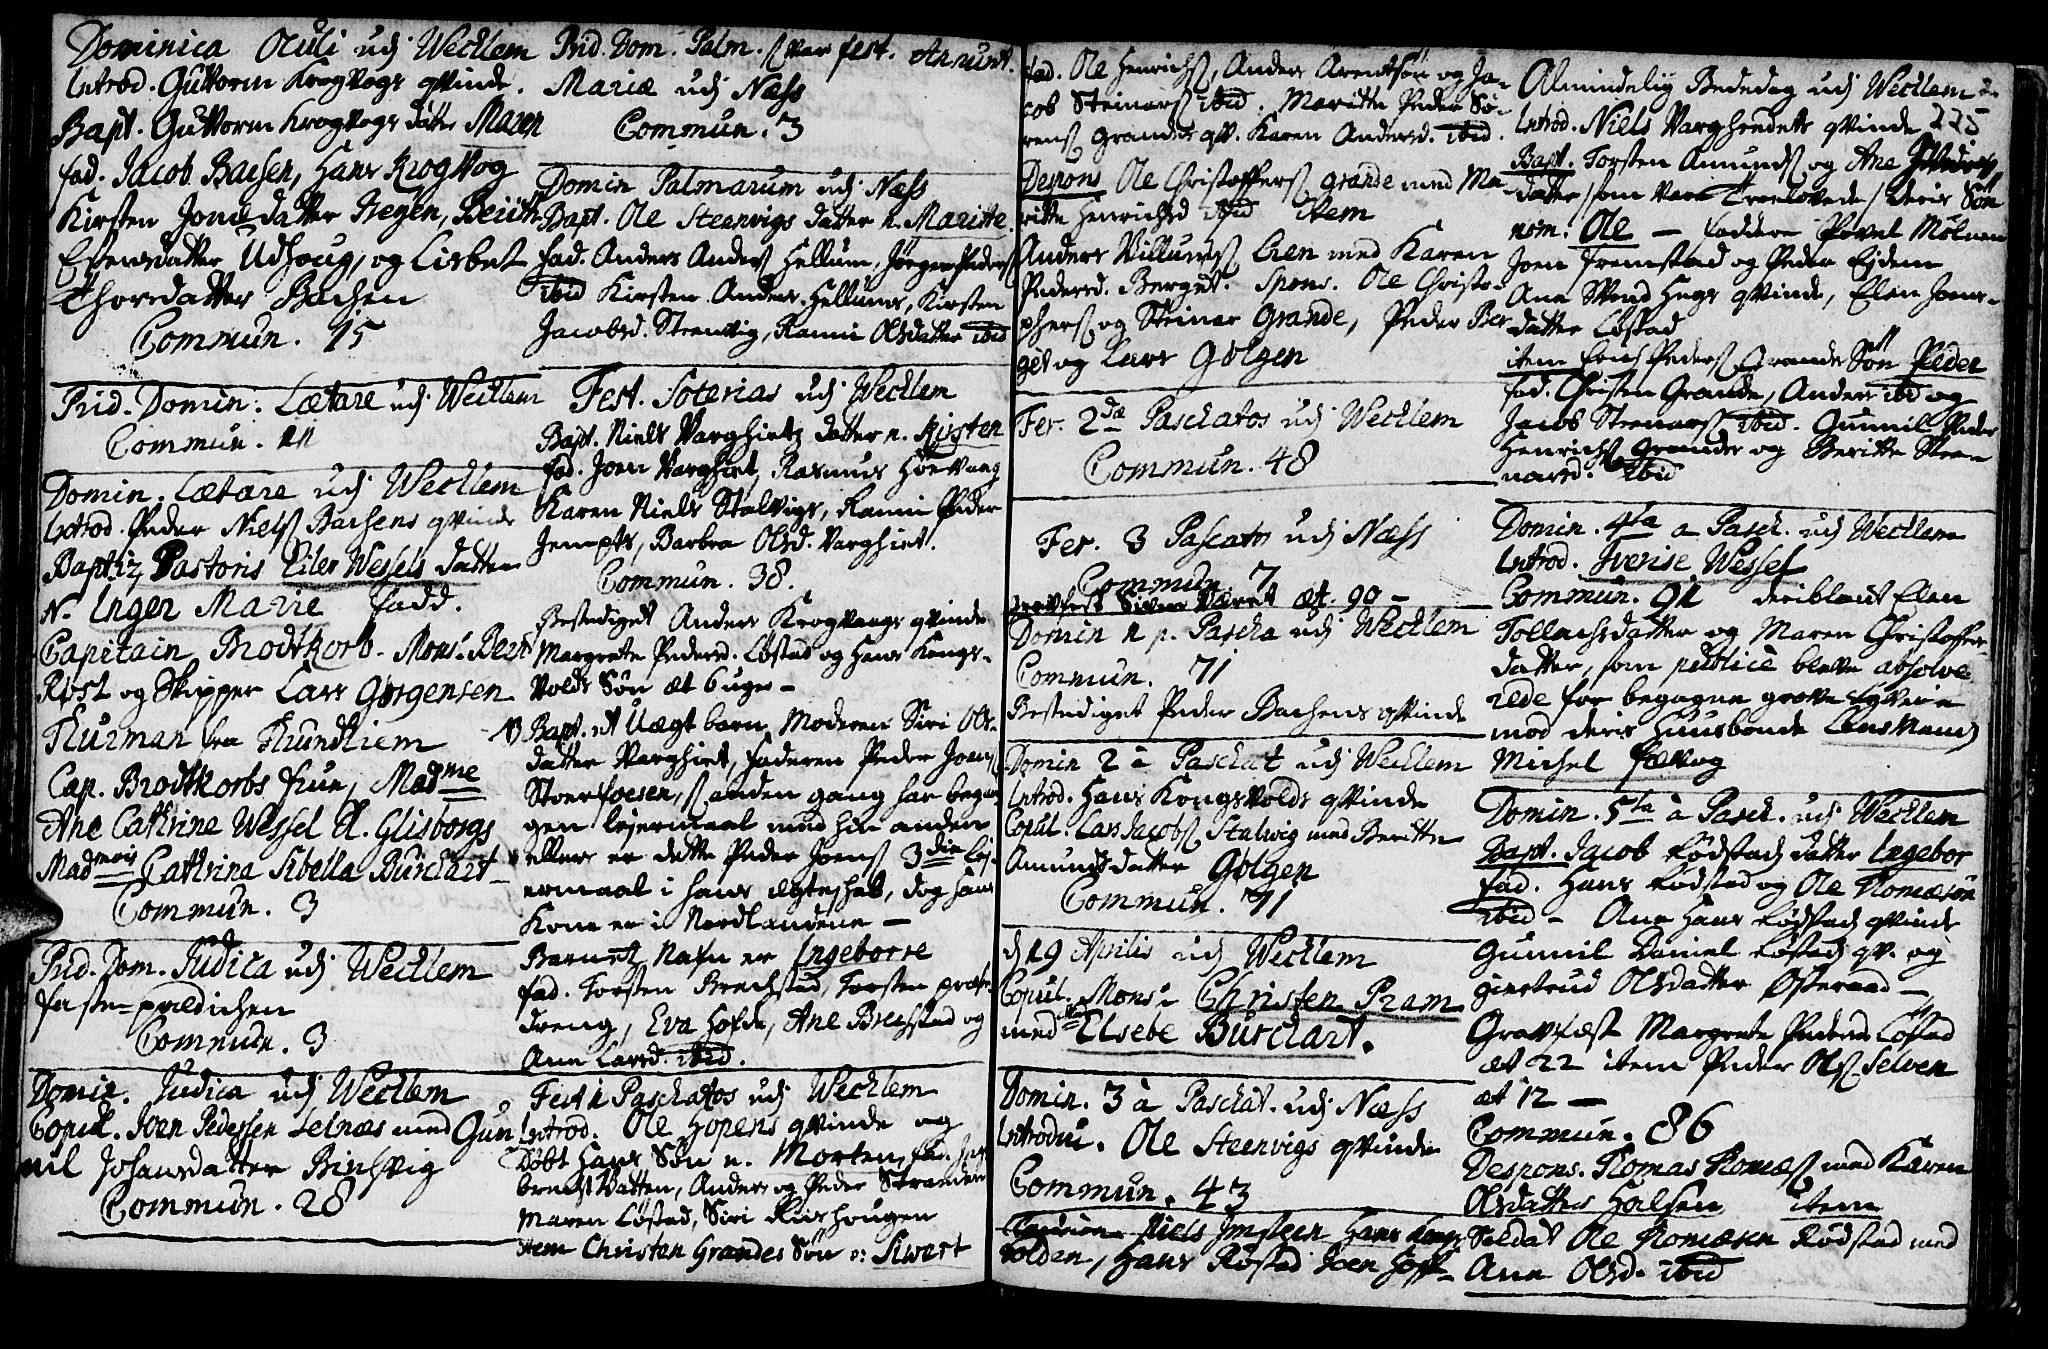 Dominica Oculi udj Wechlem
Introd. Guttorm Krogvogs qvinde.
Bapt. Guttorm Krogvogs datter Maren
fad. Jacob Bachen, Hans Krogvog
Kirsten Jonsdatter Hegen, Beritte
Estensdatter Udhoug, og Lisbet
Thorsdatter Bachen
Commun. 15
Prid. Domin. Lætare udj Wechlem
Commun. 11
Domin. Lætare udj Wechlem
Introd. Peder Niels Bachens qvinde
Baptiz. Pastoris Eiler Wessels datter
N. Inger Marie fadd.
Capitain Brodtkorb. Mons. Bernt
Røst og Skipper Lars Gørgensen
Thurman fra Thrundhiem
Cap. Brodtkorbs frue, Madme
Ane Cathrine Wessel Sl. Glisborgs
Madmois Cathrina Sibella Burchart
Commun. 3
Prid. Dom. Judica udj Wechlem
faste-prædichen
Commun. 3
Domin. Judica udj Wechlem
Copul. Joen Pedersen Selnæs med Gun
nil Johansdatter Binsvig
Commun. 28
Prid. Dom. Palm. s. var fest. Annunt.
Mariæ udj Næss
Commun. 3
Domin Palmarum udj Næss
Bapt. Ole Steenvigs datter n. Maritte.
fad. Anders Anders Hellum, Jørgen Peders
ibid Kirsten Anders Hellums, Kirsten
Jacobsd. Steenvig, Ranni Olsdatter ibid
Fest. Soterias udj Wechlem
Bapt. Niels Varghiets datter n. Kirsten
fad. Joen Varghiet, Rasmus Høevaag
Karen Niels Stalvigs, Ranni Peder
Jempts, Barbra Olsd. Varghiet.
Commun. 38.
Bestediget Anders Krogvaags qvinde
Margrete Pedersd. Løstad og Hans Kongs-
volds Søn æt 6 uger -
Bapt. et Uægt barn, Moderen Siri Ols-
datter Varghiet, faderen Peder Joens
Stoerfoesen, s. anden gang har began-
gen lejermaal med hin anden
ellers er dette Peder Joens 3die lej-
ermaal i hans ægteskab, dog hans
Kone er i Nordlandene -
Barnets Nafn er Ingeborre
fad. Torsten Brechstad, Torsten præste-
dreng, Eva Hofde, Ane Brechstad og
Ane Larsd. ibid.
Fest 1 Paschatos udj Wechlem
Introd. Ole Hopens qvinde og
Døbt Hans Søn n. Morten, fad. Inge-
brigt Vatten, Anders og Peder Stranden
Maren Løstad, Siri Riishougen
item Christen Grandes Søn n: Siwert
fad. Ole Henrichs, Anders Arentsøn og Ja-
cob Steinars ibid. Maritte Peder Sø-
rens Grandes qv. Karen Andersd. ibid.
Despons Ole Christoffers Grande med Ma-
ritte Henrichsd ibid item
Anders Villums Lien med Karen
Pedersd. Berget. Spons. Ole Christo-
phers og Steinar Grande, Peder Ber
get og Lars Golgen
Fer. 2dæ Paschatos udj Wechlem
Commun. 48
Fer. 3 Pascatos udj Næss
Commun. 7
Gravfest Siver Været æt. 90 -
Domin 1 p. Pascha udj Wechlem
Commun. 71
Bestediget Peder Bachens qvinde
Domin 2 à Paschat udj Wechlem
Introd. Hans Kongsvolds qvinde
Copul. Lars Jacobs Stalwig med Beritte
Amundsdatter Golgen
Commun. 71
d. 19 Aprilis udj Wechlem
Copul. Mons. Christen Pram
med Elsebe Burchart.
Domin. 3 à Paschat. udj Næss
Introdu. Ole Steenvigs qvinde
Commun. 43
Niels Jmsteen Hans Kongs
volden, Hans Røstad Joen Hoff-
Almindelig Bededag udj Wechlem
225
Introd. Niels Varghiedets qvinde
Bapt. Torsten Amunds og Ane
datter som vare Troelovede deris Søn
nom. Ole - faddere Povel Mølnen
Joen Fremstad og Peder Ejdem
Ane Svend Hegs qvinde, Elen Joens-
datter Løstad
item Erich Peders Grande Søn Peder
fad. Christen Grande, Anders ibid og
Jacob Steenars ibid. Gunnil Peder
Henrichs Grandes og Beritte Steen
narsd. ibid
Domin. 4ta a Pasch. udj Wechlem
Introd. Sverise Wessel
Commun. 91 deriblant Elen
Tollachsdatter og Maren Christoffer-
datter, som publicè bleve absolve-
rede for begagne grove tyverie
mod deris Huusbonde Lensmand
Michel Fævog
Domin. 5ta à Pasch. udj Wechlem
Bapt. Jacob Rødstad datter Ingebor
fad. Hans Rødstad og Ole Thomæsøn
ibid - Ane Hans Rødstads qvinde
Gunnil Daniel Løstad qv. og
giertrud Olsdatter Østeraad -
Gravfæst Margrete Pedersd. Løstad
æt 22 item Peder Ols Selven
æt 12 -
Commun. 86
Despons. Thomas Thomæs med Karen
Olsdatter Halsen item
Soldat Ole Thomæsen Rødstad med
Ane Olsd. ibid